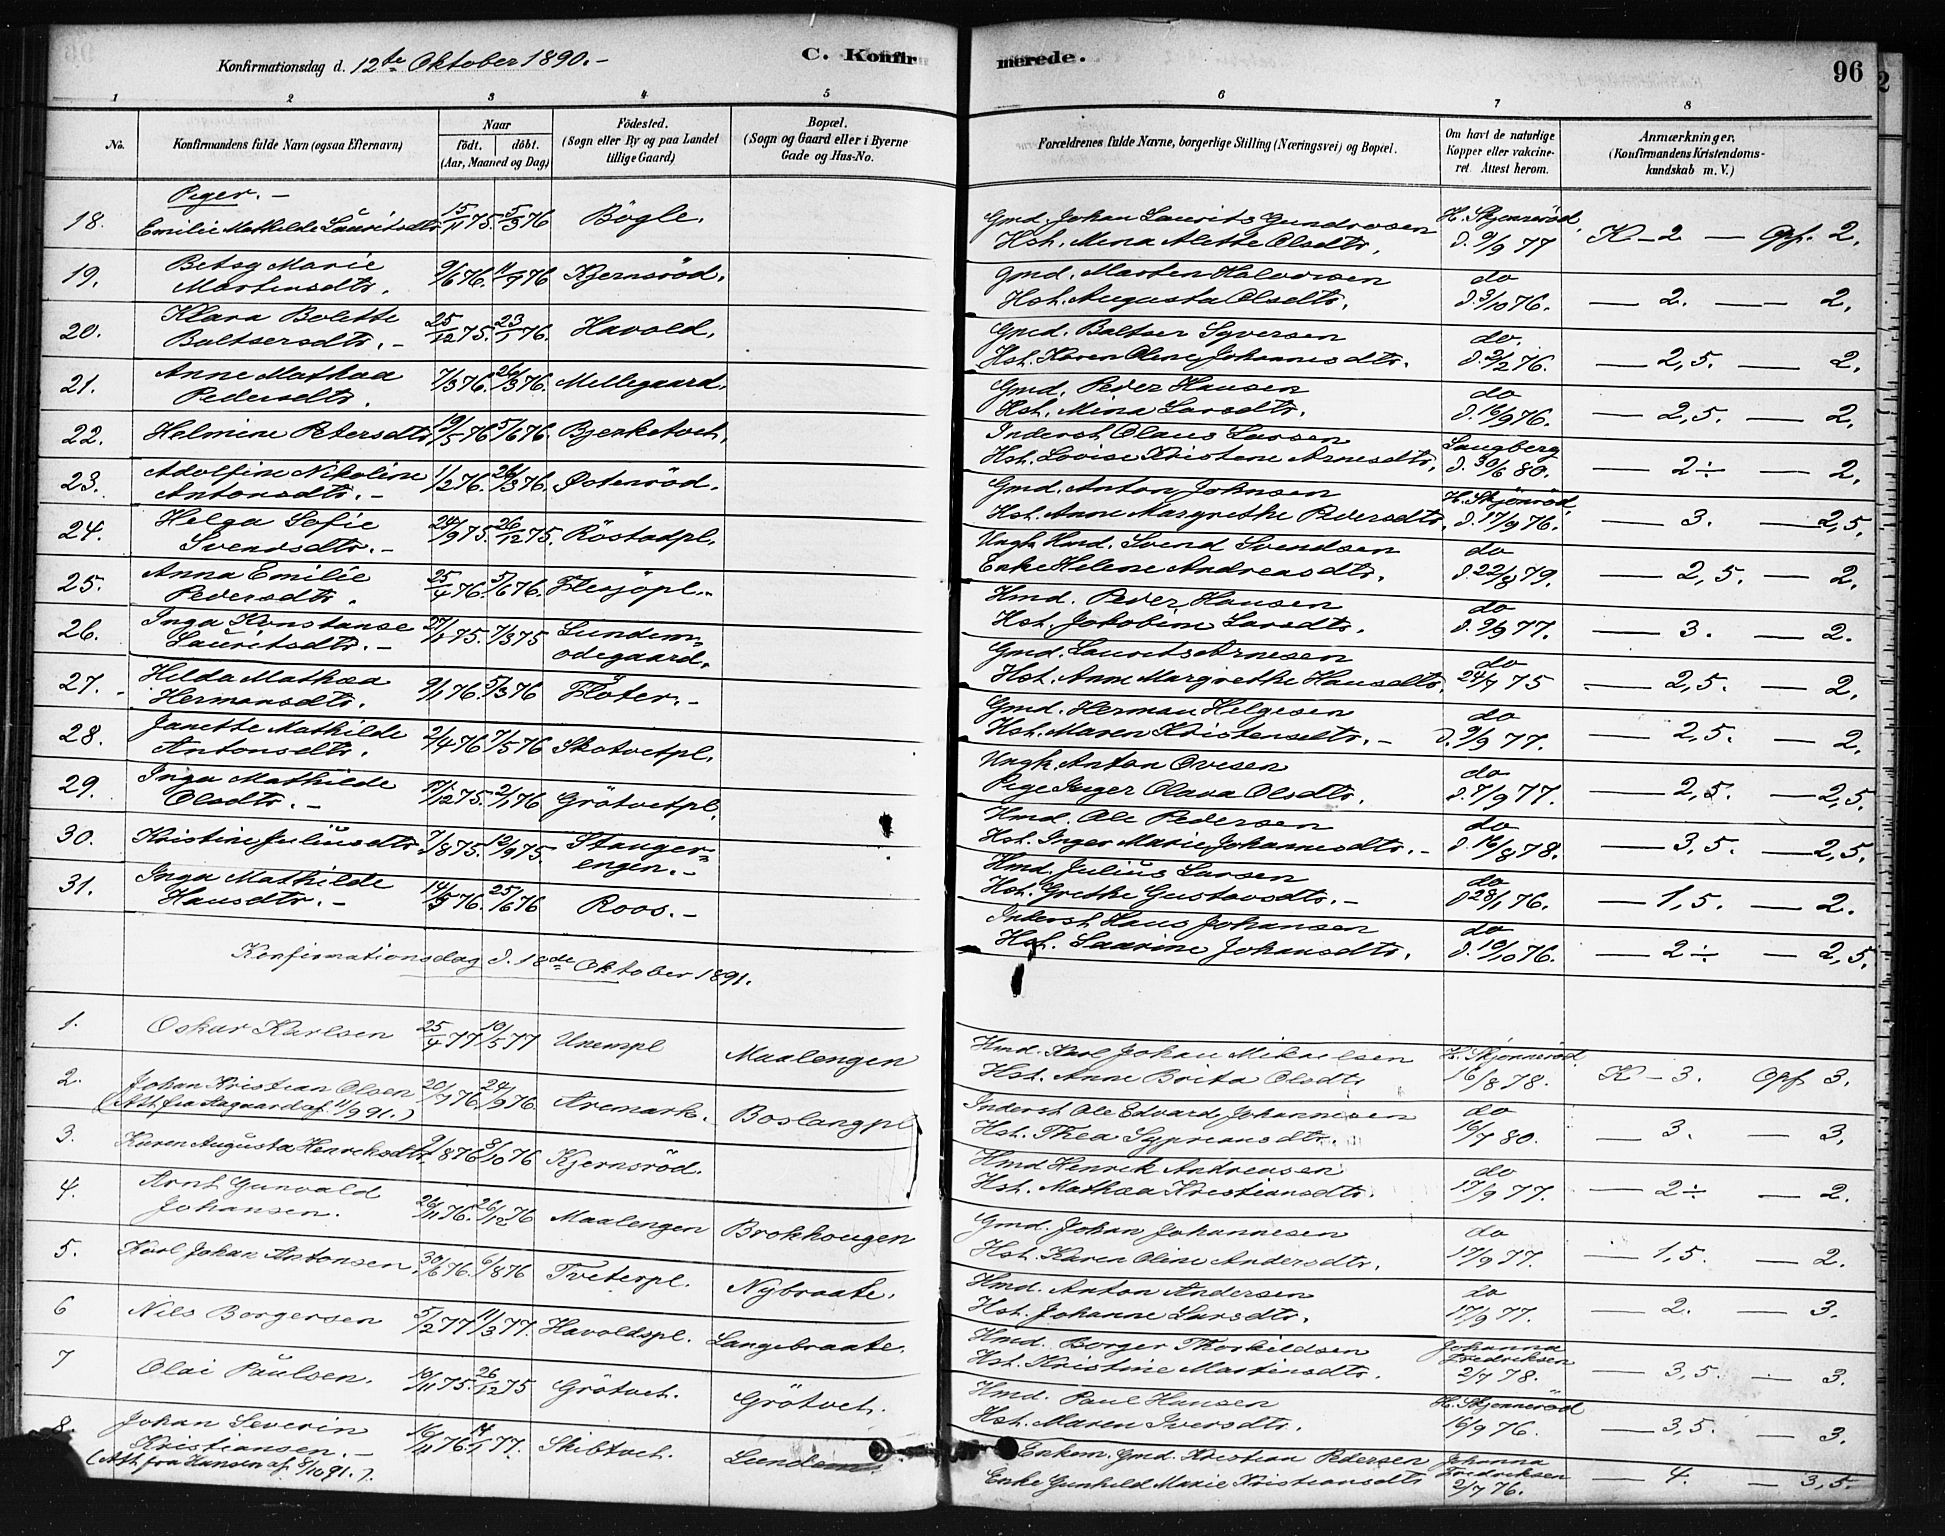 Konfirmationsdag d. 12te Oktober 1890.-
C. Konfirmerede.
96
1 2 3 4 5 6 7 8
No.
Konfirmandens fulde Navn (ogsaa Efternavn)
Naar
født. døbt.
(Aar, Maaned og Dag)
Fødested.
(Sogn eller By og paa Landet
tillige Gaard)
Bopæl.
(Sogn og Gaard eller i Byerne
Gade og Hus-No.
Forældrenes fulde Navne, borgerlige Stilling (Næringsvei) og Bopæl.
Om havt de naturlige
Kopper eller vakcine-
ret. Attest herom.
Anmærkninger,
(Konfirmandens Kristendoms-
kundskab m. V.)
Piger.-
18. Emilie Mathilde Lauritsdtr. 15/11 75. 5/3 76 Bögle. Gmd. Johan Laurits Gundrosen H. Skjønnerød
Hst. Mina Alette Olsdtr. d. 9/9 77 K-2 - Opf. 2.
19. Betsy Marie
Martinsdtr. 9/6 76. 11/9 76 Kjernsröd. Gmd. Marten Halvorsen do
Hst. Augusta Olsdtr. d. 3/10 76. - 2. - 2.
20. Klara Bolette
Baltsersdtr.- 25/12 75. 23/1 76. Havold. Gmd. Baltser Syversen do.
Hst. Karen Oline Johannesdtr. d. 2/2 76. - 2,5. - 2.
21. Anne Mathea
Pedersdtr. 7/3 76. 26/3 76. Mellegaard. Gmd. Peder Hansen do
Hst. Mina Larsdtr. d. 16/9 76. - 2,5. - 2.
22. Helmine Petersdtr 19/5 76 5/6 76. Bjerketvet. Inderst Olaus Larsen Saugberg
Hst. Lovise Kristine Arnesdtr. d. 30/6 80. - 2÷ - 2.
23. Adolfine Nikoline
Antonsdtr.- 1/2 76. 26/3 76. Ostenröd. Gmd. Anton Johnsen H. Skjönröd
Hst. Anne Margrethe Pedersdtr. d. 17/9 76. - 3. - 2,5.
24. Helga Sofie
Svendsdtr.- 24/9 75. 26/12 75. Röstadpl. Ungk. Hmd. Svend Svendsen do
Enke Helene Andreasdtr. d. 22/8 79. - 2,5. - 2.
25. Anna Emilie
Pedersdtr. 25/4 76. 5/6 76. Flesjöpl.. Hmd. Peder Hansen do
Hst. Jakobine Larsdtr. d. 9/9 77. - 3. - 2.
26. Inga Konstanse
Lauritsdtr.- 7/3 75 Lundem=
odegaard. Gmd. Laurits Arnesen do
Hst. Anne Margrethe Hansdtr. 75 - 2,5. - 2.
27. Hilda Mathea
Hermansdtr. 9/1 76. 5/3 76 Flöter.- Gmd. Herman Helgesen do
Hst. Maren Kristensdtr.- d. 9/9 77. - 2,5. - 2.
28. Janette Mathilde
Antonsdtr. 2/4 76 7/5 76 Skotvetpl. Ungk. Anton Ovesen do
Pige Inger Olava Olsdtr. d. 7/9 77. - 2,5. - 2,5.
29. Inga Mathilde
Olsdtr.- 17/12 75. 2/1 76 Grötvetpl. Hmd. Ole Pedersen do
Hst. Inger Marie Johannesdtr.- d. 16/8 78. - 3,5. - 2,5.
30. Kristine Juliusdtr 7/8 75. 12/9 75. Stanger=
engen.- Hmd. Julius Larsen do
Hst. Grethe Gustavsdtr.- d 28/1 76. - 1,5. - 2.
31. Inga Mathilde
Hansdtr.- 76. 25/6 76 Roos.- Inderst Hans Johansen do
Hst. Saarine Johansdtr. d. 10/10 76. - 2÷ - 2,5.
Konfirmationsdag d. 18de Oktober 1891.
1. Oskar Karlsen 25/4 77 10/5 77 Maalengen Hmd. Karl Johan Mikaelsen H. Skjønnerød
Hst. Anne Brita Olsdtr 16/8 78. K-3. Opf 3.
2. Johan Kristian Olsen 20/7 76. 24/9 76. Aremark. Boslangpl Inderst Ole Edvard Johannesen do
(Att. fra Aagaard af 11/9 91.) Hst. Thea Sypriansdtr. 16/7 80. - 3. - 3.
3. Karen Augusta Henriksdtr. 9/8 76 8/10 76 Kjernsröd. Hmd Henrik Andreasen do
Hst. Mathea Kristiansdtr. 17/9 77. - 2÷ - 2.
4. Arnt Gunvald
Johansen. 26/11 76. 26/12 76 Maalengen Brokhougen Gmd. Johan Johannesen do
Hst. Karen Oline Andersdtr. 17/9 77. - 1,5. - 2.
5. Karl Johan Antonsen. 30/6 76. 6/8 76 Tveterpl. Nybraate. Hmd. Anton Andersen do
Hst. Johanne Larsdtr. 17/9 77. - 2. - 3.
6 Nils Borgersen 5/2 77 11/3 77. Havoldspl. Langebraate. Hmd. Borger Thorkildsen Johanna
Fredriksen
Hst. Kristine Martinsdtr. 2/7 78. - 3,5. - 3.
7 Olai Paulsen. 10/11 75. 26/12 75 Grötvet. Grötvet. Hmd. Paul Hansen H. Skjønnerød
Hst. Maren Iversdtr. 16/9 76. - 3,5. - 3.
8. Johan Severin
Kristiansen.- 16/11 76. 14/1 77. Skibtvet. Lundem. Enkem. Gmd. Kristian Pedersen Johanna
Fredriksen
(Att. fra Hansen af 8/10 91.). Enke Gunhild Marie Kristiansdtr 2/7 76. - 4. - 3,5.